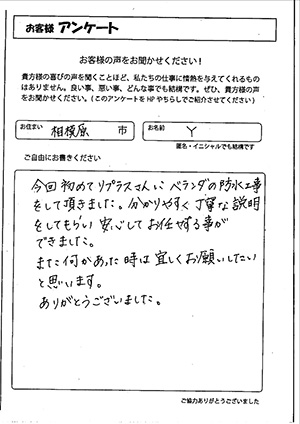 お客様 アンケート
お客様の声をお聞かせください！
貴方様の喜びの声を聞くことほど、私たちの仕事に情熱を与えてくれるもの
はありません。良い事、悪い事、どんな事でも結構です。ぜひ、貴方様の声
をお聞かせください。（このアンケートをHPやちらしでご紹介させてください）
お住まい 相模原 市 お名前 Y
匿名・イニシャルでも結構です
ご自由にお書きください
今回初めてリプラスさんに ベランダの防水工事
をして頂きました。分かりやすく丁寧な説明
をしてもらい 安心してお任せする事が
できました。
また何かあった時は宜しくお願いしたい
と思います。
ありがとうございました。
ご協力ありがとうございました